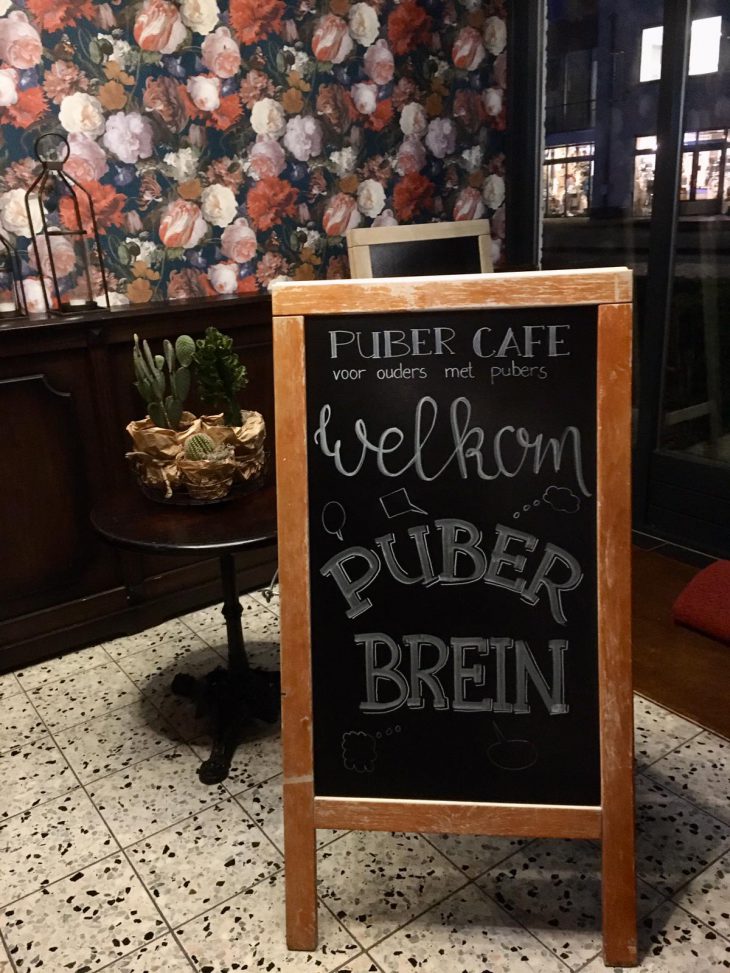 PUBER CAFE
voor ouders met pubers
Welkom
PUBER
BREIN